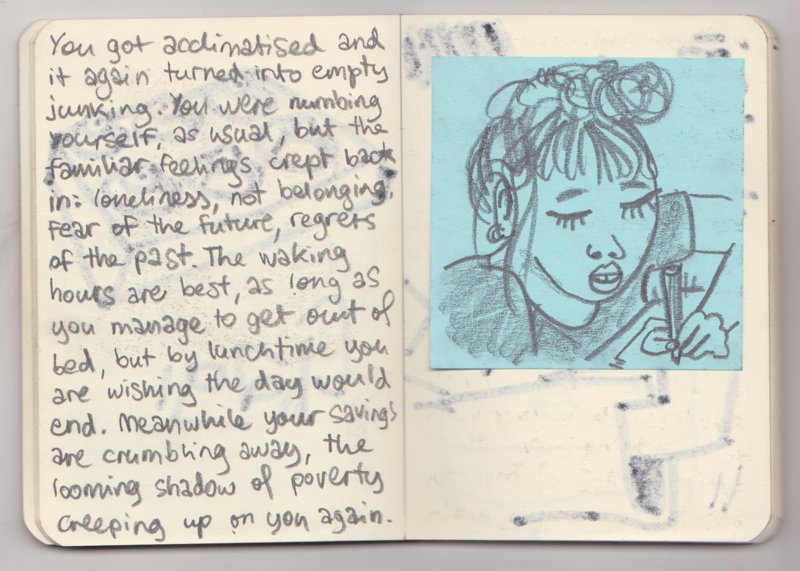 You got acclimatised and
it again turned into empty
junking. You were numbing
yourself, as usual, but the
familiar feelings crept back
in: loneliness, not belonging,
fear of the future, regrets
of the past. The waking
hours are best, as long as
you manage to get out of
bed, but by lunchtime you
are wishing the day would
end. Meanwhile your savings
are crumbling away, the
looming shadow of poverty
creeping up on you again.